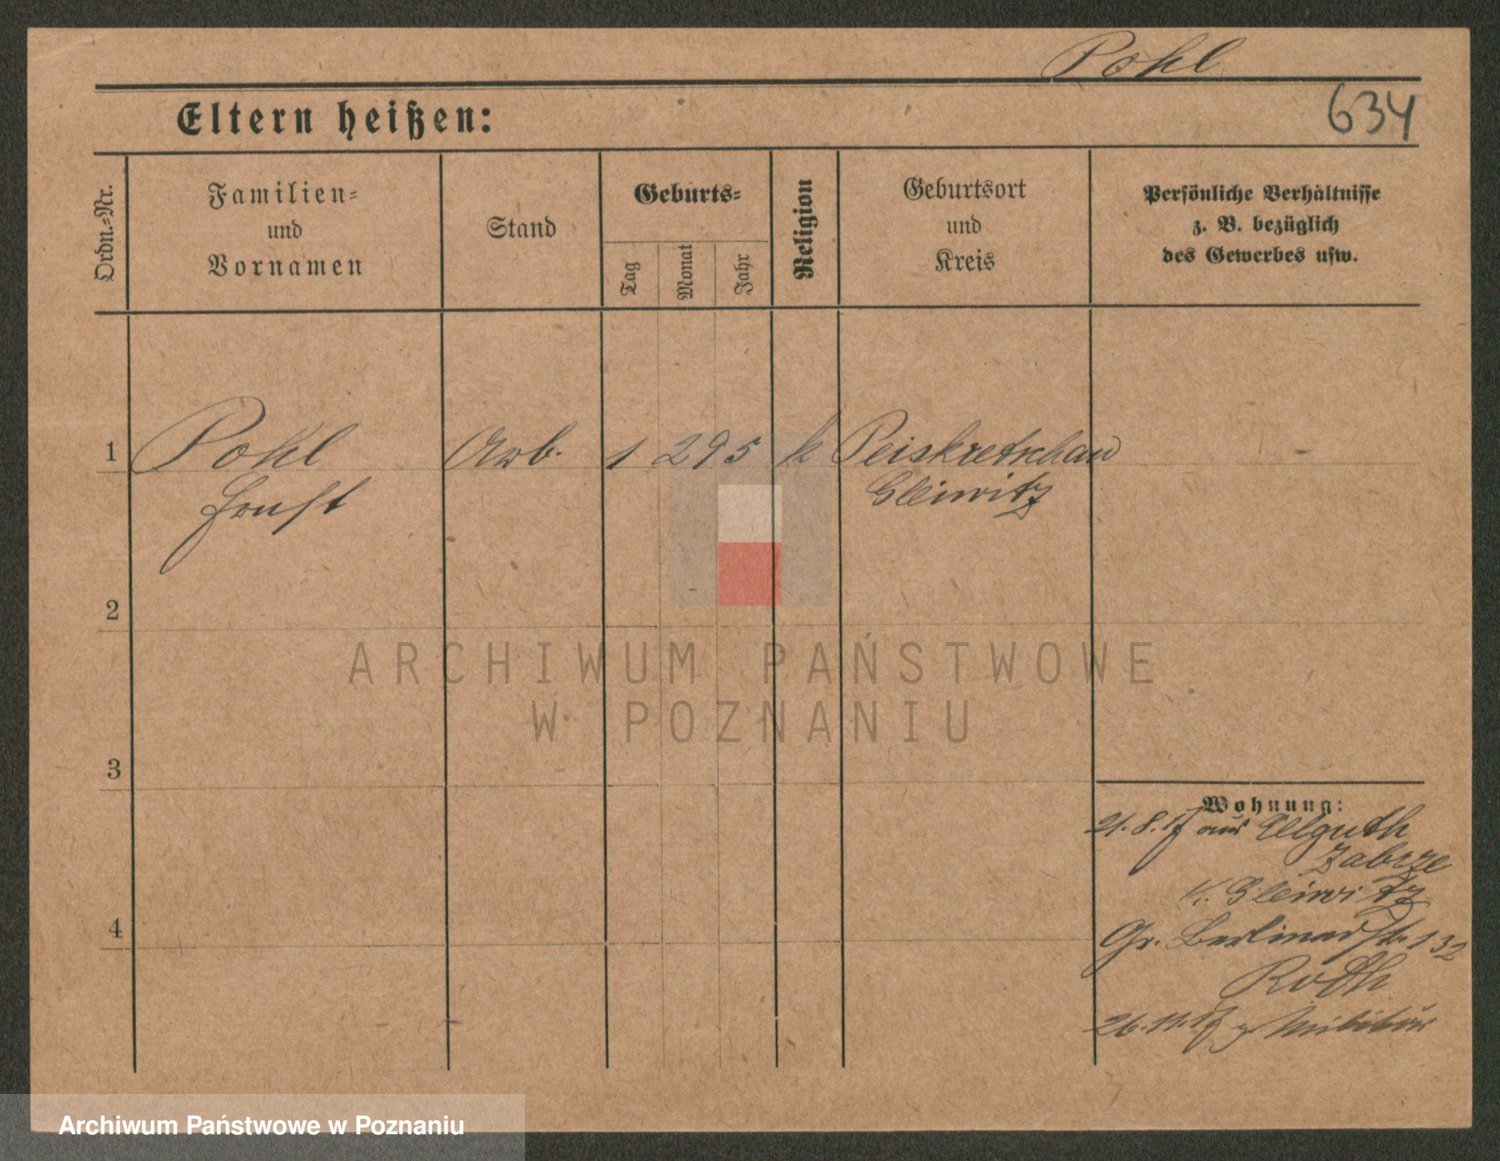 Pohl
634
Eltern heißen:
Ordn.-Nr.
Familien-
und
Vornamen
Stand
Geburts-
Tag
Monat
Jahr
Religion
Geburtsort
und
Kreis
Persönliche Verhältnisse
z. B. bezüglich
des Gewerbes usw.
1
Pohl
Ernst
Arb.
1 2 95
k
Peiskretschau
Gleiwitz
2
3
4
Wohnung:
21.8.17 aus Ellguth
Zabrze
K. Gleiwitz
Gr. Berlinerstr. 132
Roth
26.11.17 z Militär
ARCHIWUM PAŃSTWOWE
W POZNANIU
Archiwum Państwowe w Poznaniu